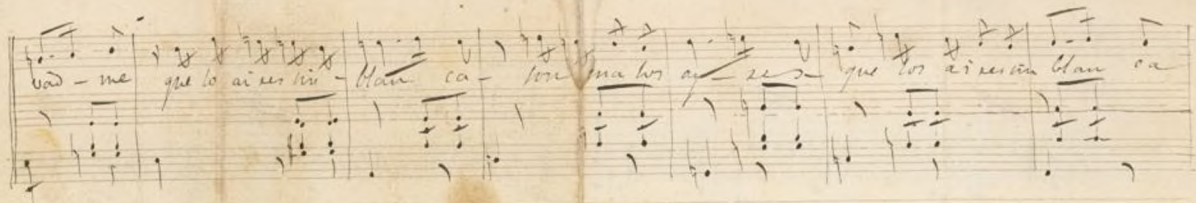 vad - me que lo aires un - blan ca - son malos ay - res - que los aires un blan ca